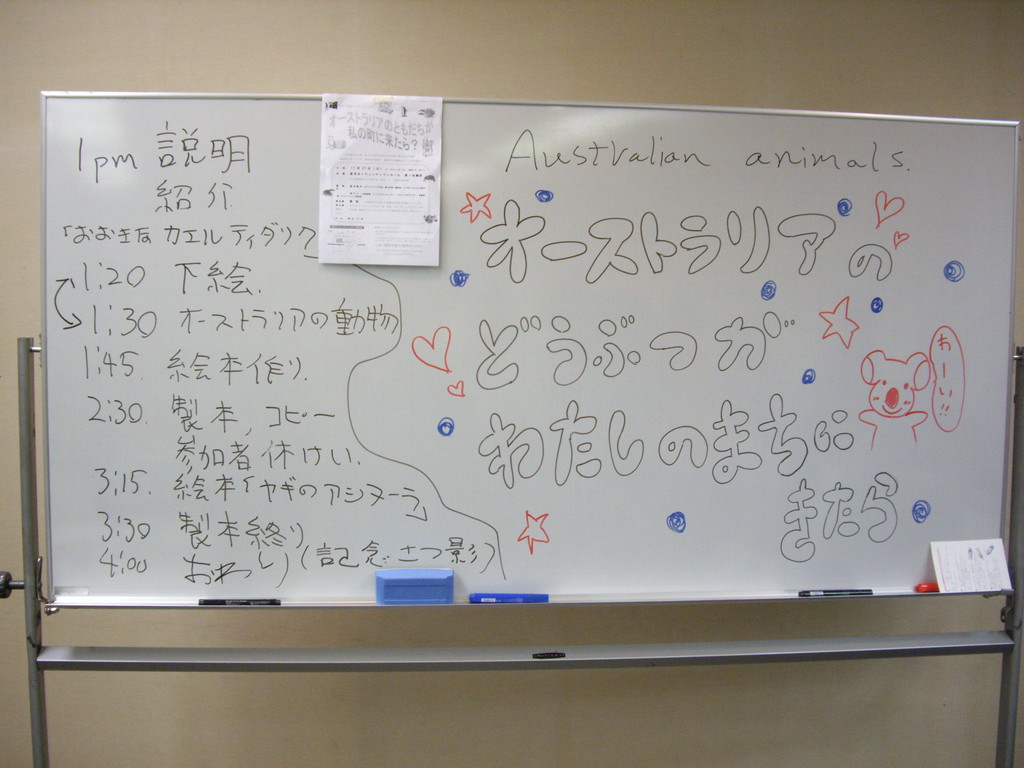 1pm 説明
紹介
「おおきな カエル ティダリク
1:20 下絵.
1:30 オーストラリアの動物
1:45. 絵本作り.
2:30. 製本, コピー
参加者休けい.
3:15. 絵本「ヤギのアシヌーラ」
3:30 製本終り
4:00 おわり (記念さつ影)
オーストラリアのともだちが
私の町に来たら?
Australian animals.
オーストラリアの
どうぶつが
わたしのまちに
きたら
おーい!!